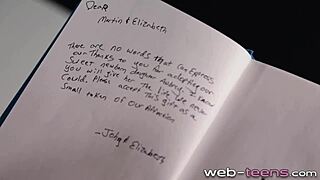 Dear
Martin & Elizabeth
There are no words that can express
our thanks to you for adopting our
sweet newborn daughter Audrey. I know
you will give her the life we never
could. Please accept this gift as a
small token of our affection
- John & Elizabeth
web-teens.com